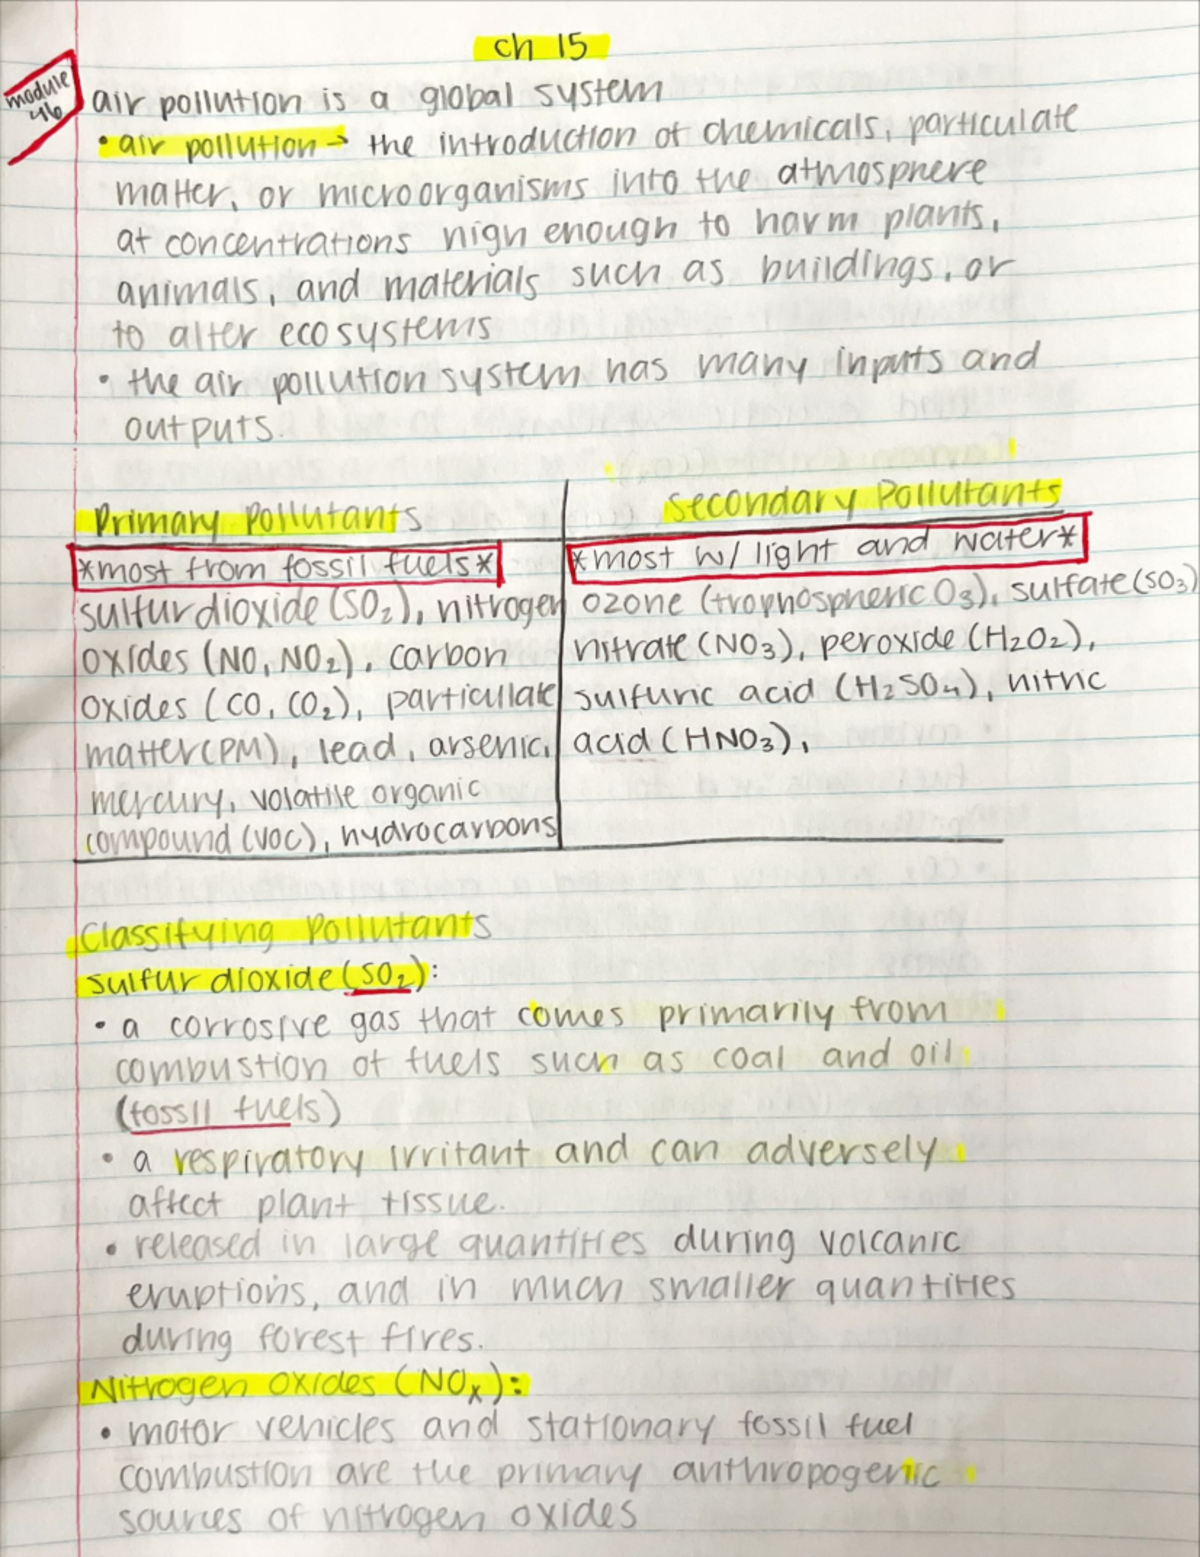 ch 15
module 46
air pollution is a global system
• air pollution → the introduction of chemicals, particulate
matter, or microorganisms into the atmosphere
at concentrations high enough to harm plants,
animals, and materials such as buildings, or
to alter ecosystems
• the air pollution system has many inputs and
outputs.
Primary Pollutants
*most from fossil fuels*
sulfur dioxide (SO₂), nitrogen
oxides (NO, NO₂), carbon
oxides (CO, CO₂), particulate
matter (PM), lead, arsenic,
mercury, volatile organic
compound (VOC), hydrocarbons
Secondary Pollutants
*most w/ light and water*
ozone (trophospheric O3), sulfate (SO3)
nitrate (NO3), peroxide (H2O2),
sulfuric acid (H2SO4), nitric
acid (HNO3),
Classifying Pollutants
sulfur dioxide (SO₂):
• a corrosive gas that comes primarily from
combustion of fuels such as coal and oil
(fossil fuels)
• a respiratory irritant and can adversely
affect plant tissue.
• released in large quantities during volcanic
eruptions, and in much smaller quantities
during forest fires.
Nitrogen Oxides (NOₓ):
• motor vehicles and stationary fossil fuel
combustion are the primary anthropogenic
sources of nitrogen oxides